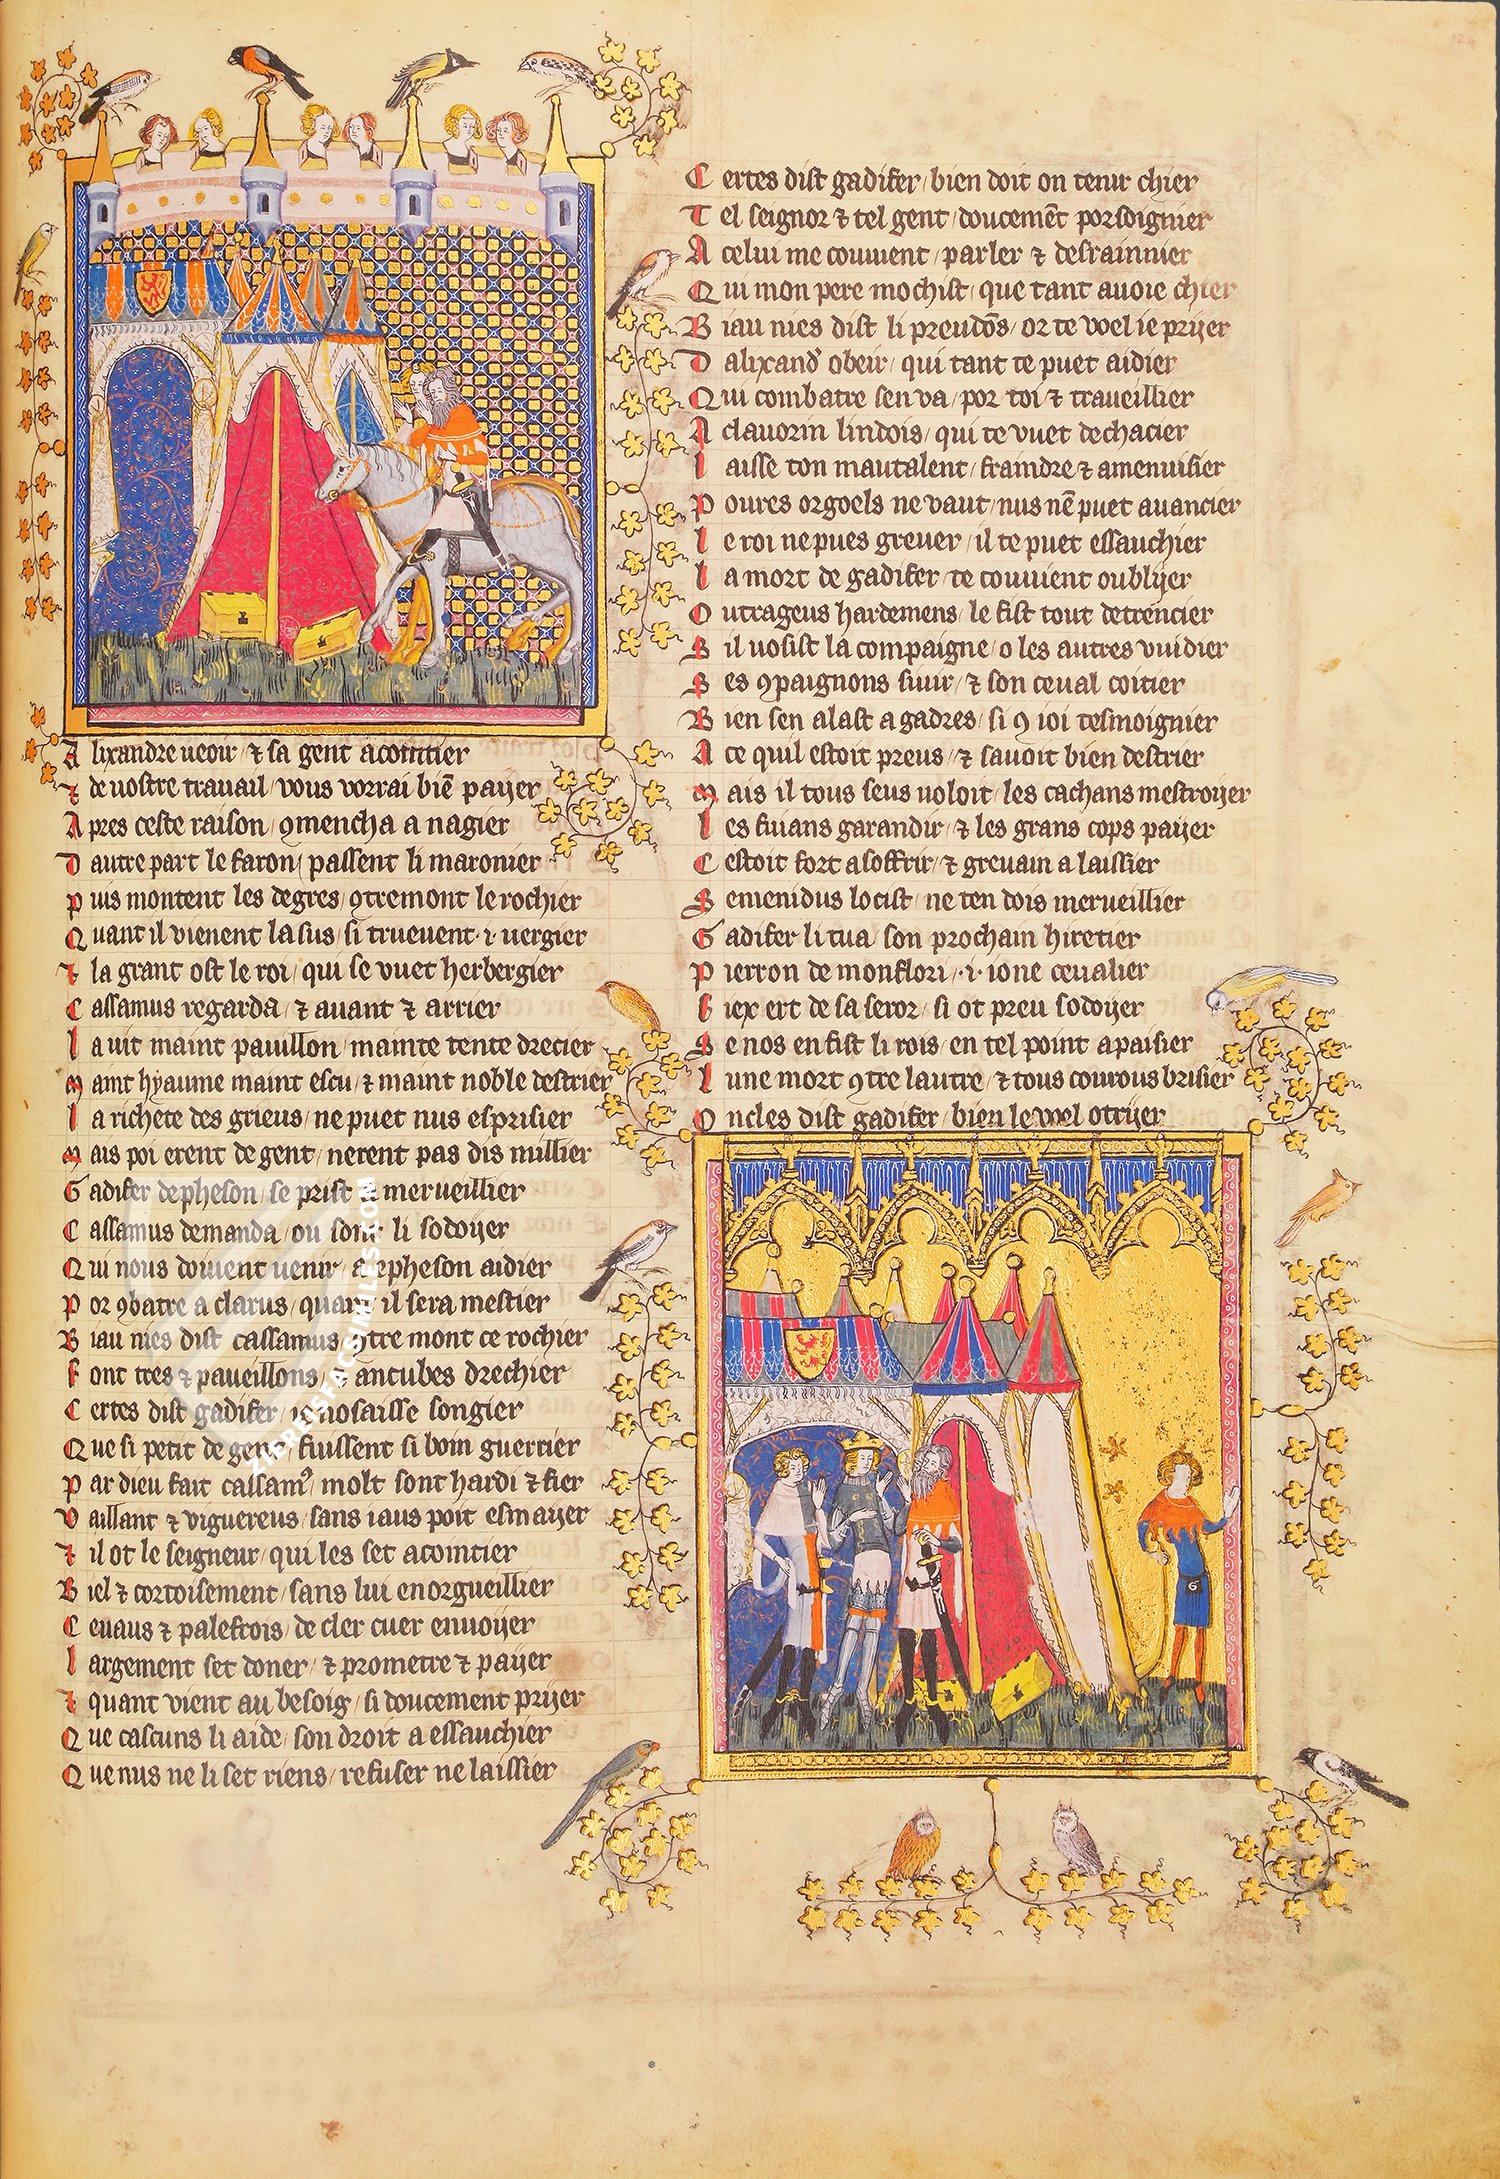 A lixandre ueoir / ⁊ sa gent acointier
⁊ de uostre trauail / vous vorrai biē payer
A pres ceste raison / ꝯmencha a nagier
D autre part le faron / passent li maronier
P uis montent les degres / ꝯtremont le rochier
Q uant il vienent la sus / si truevent .i. uergier
⁊ la grant ost le roi / qui se vuet herbergier
C assamus regarda / ⁊ auant ⁊ arrier
L a uit maint pauillon / mainte tente drecier
M aint hyaume maint escu / ⁊ maint noble destrier
L a richete des grieus / ne puet nus esprisier
M ais poi erent de gent / nerent pas dis millier
G adifer depheson / se prist a merueillier
C assamus demanda / ou sont li sodoyer
Q ui nous doiuent uenir / a epheson aidier
P or ꝯbatre a clarus / quant il sera mestier
B iau nies dist cassamus / ꝯtre mont ce rochier
S ont tres ⁊ paueillons / ⁊ ancubes drechier
C ertes dist gadifer / ie nosaisse songier
Q ue si petit de gent / fuissent si boin guerrier
P ar dieu fait cassamꝰ / molt sont hardi ⁊ fier
V aillant ⁊ viguereus / sans iaus poit esmayer
⁊ il ot le seigneur / qui les set acointier
B iel ⁊ cortoisement / sans lui enorgueillier
C euaus ⁊ palefrois / de cler cuer enuoyer
L argement set doner / ⁊ prometre ⁊ payer
⁊ quant vient au besoig / si doucement pryer
Q ue cascuns li aide / son droit a essauchier
Q ue nus ne li set riens / refuser ne laissier
C ertes dist gadifer / bien doit on tenir chier
T el seignor ⁊ tel gent / doucemēt porsoignier
A celui me couuient / parler ⁊ desrainnier
Q ui mon pere mochist / que tant auoie chier
B iau nies dist li preudōs / or te voel ie pryer
D alixandꝰ obeir / qui tant te puet aidier
Q ui combatre sen va / por toi ⁊ traueillier
A clauorin lindois / qui te vuet dechacier
L aisse ton mautalent / fraindre ⁊ amenuisier
P oures orgoels ne vaut / nus nē puet auancier
L e roi ne pues greuer / il te puet essauchier
L a mort de gadifer / te couuient oublyer
O utrageus hardemens / le fist tout detrencier
S il uosist la compaigne / o les autres vuidier
S es ꝯpaignons siuir / ⁊ son ceual coitier
B ien sen alast a gadres / si ꝯ ioi tesmoignier
A ce quil estoit preus / ⁊ sauoit bien destrier
M ais il tous seus uoloit / les cachans mestroyer
L es fuians garandir / ⁊ les grans cops payer
C estoit fort a soffrir / ⁊ greuain a laissier
E menidus locist / ne ten dois merueillier
G adifer li tua / son prochain hiretier
P ierron de monflori / .i. ione ceualier
F iex ert de sa seror / si ot preu sodoyer
S e nos en fist li rois / en tel point apaisier
L une mort ꝯtre lautre / ⁊ tous courous brisier
O ncles dist gadifer / bien le voel otryer